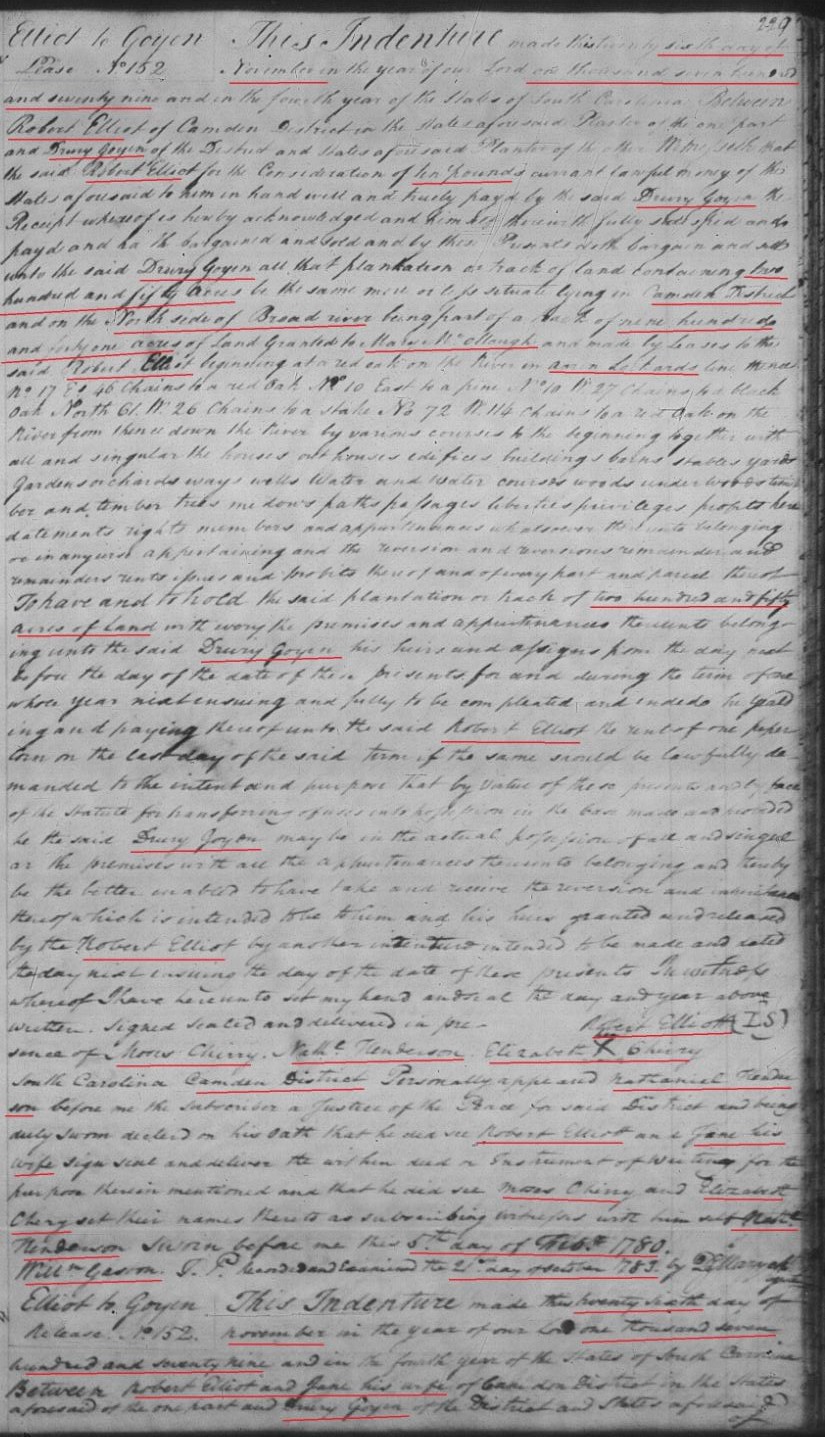 229
Elliot to Goyen This Indenture made this twenty sixth day of
Lease No 152 November in the year of our Lord one thousand seven hundred
and seventy nine and in the fourth year of the States of South Carolina Between
Robert Elliot of Camden District in the States aforesaid Planter of the one part
and Drury Goyen of the District and States aforesaid Planter of the other Witnesseth that
the said Robert Elliot for the Consideration of ten pounds currant lawful money of the
States aforesaid to him in hand well and truely payd by the said Drury Goyen the
Receipt whereof is hereby acknowledged and himself therewith fully satisfied and
payd and hath bargained and sold and by these Presents doth bargain and sell
unto the said Drury Goyen all that plantation or track of land containing two
hundred and fifty Acres be the same more or less situate lying in Camden District
and on the North side of Broad river being part of a track of nine hundred
and forty one acres of Land Granted to Mary McCollough and made by Leases to the
said Robert Elliot beginning at a red oak on the River in line thence
No 17 E 46 Chains to a red Oak No 10 East to a pine No 10 W 27 Chains to a black
Oak North 61. W. 26 Chains to a stake No 72 W. 114 Chains to a red Oak on the
River from thence down the River by various courses to the beginning together with
all and singular the houses out houses edifices buildings barns stables yards
Gardens orchards ways wells Water and Water courses woods under woods tim
ber and timber trees medows paths passages liberties privileges profits here
datements rights members and appurtenances whatsoever thereunto belonging
or in any wise appertaining and the reversion and reversions remainder and
remainders rents issues and profits thereof and of every part and parcel thereof
To have and to hold the said plantation or track of two hundred and fifty
acres of Land with every the premises and appurtenances thereunto belong-
ing unto the said Drury Goyen his heirs and assigns from the day next
before the day of the date of these presents for and during the term of one
whole year next ensuing and fully to be compleated and ended he yeald
ing and paying thereof unto the said Robert Elliot the rent of one peper
corn on the last day of the said term if the same should be lawfully de-
manded to the intent and purpose that by Virtue of these presents and by force
of the Statute for transferring of uses into possession in the Case made and provided
he the said Drury Goyen may be in the actual possession of all and singul
ar the premises with all the appurtenances thereunto belonging and thereby
be the better enabled to have take and receive the reversion and inheritance
thereof which is intended to be to him and his heirs granted and released
by the Robert Elliot by another intenture intended to be made and dated
the day next ensuing the day of the date of these presents In witness
whereof I have hereunto set my hand and seal the day and year above
written. Signed sealed and delivered in pre- Robert Elliott (LS)
sence of Moses Cherry. Nathl Henderson Elizabeth X Cherry
South Carolina Camden District Personally appeared Nathaniel Hender
son before me the subscriber a Justice of the Peace for said District and being
duly sworn declerd on his Oath that he did see Robert Elliott and Jane his
wife sign seal and deliver the within deed or Instrument of Writing for the
purpose therein mentioned and that he did see Moses Cherry and Elizabeth
Chery set their names thereto as subscribing witnesses with him self Nathl
Henderson Sworn before me this 5th day of Febr 1780.
Willm Gaston. J. P. Recorded and Examined the 21st day of october 1783. by
Elliot to Goyen This Indenture made this twenty sixth day of
Release No 152. November in the year of our Lord one thousand seven
hundred and seventy nine and in the fourth year of the States of South Carolina
Between Robert Elliot and Jane his wife of Camdon District in the States
aforesaid of the one part and Drury Goyen of the District and States aforesaid
of